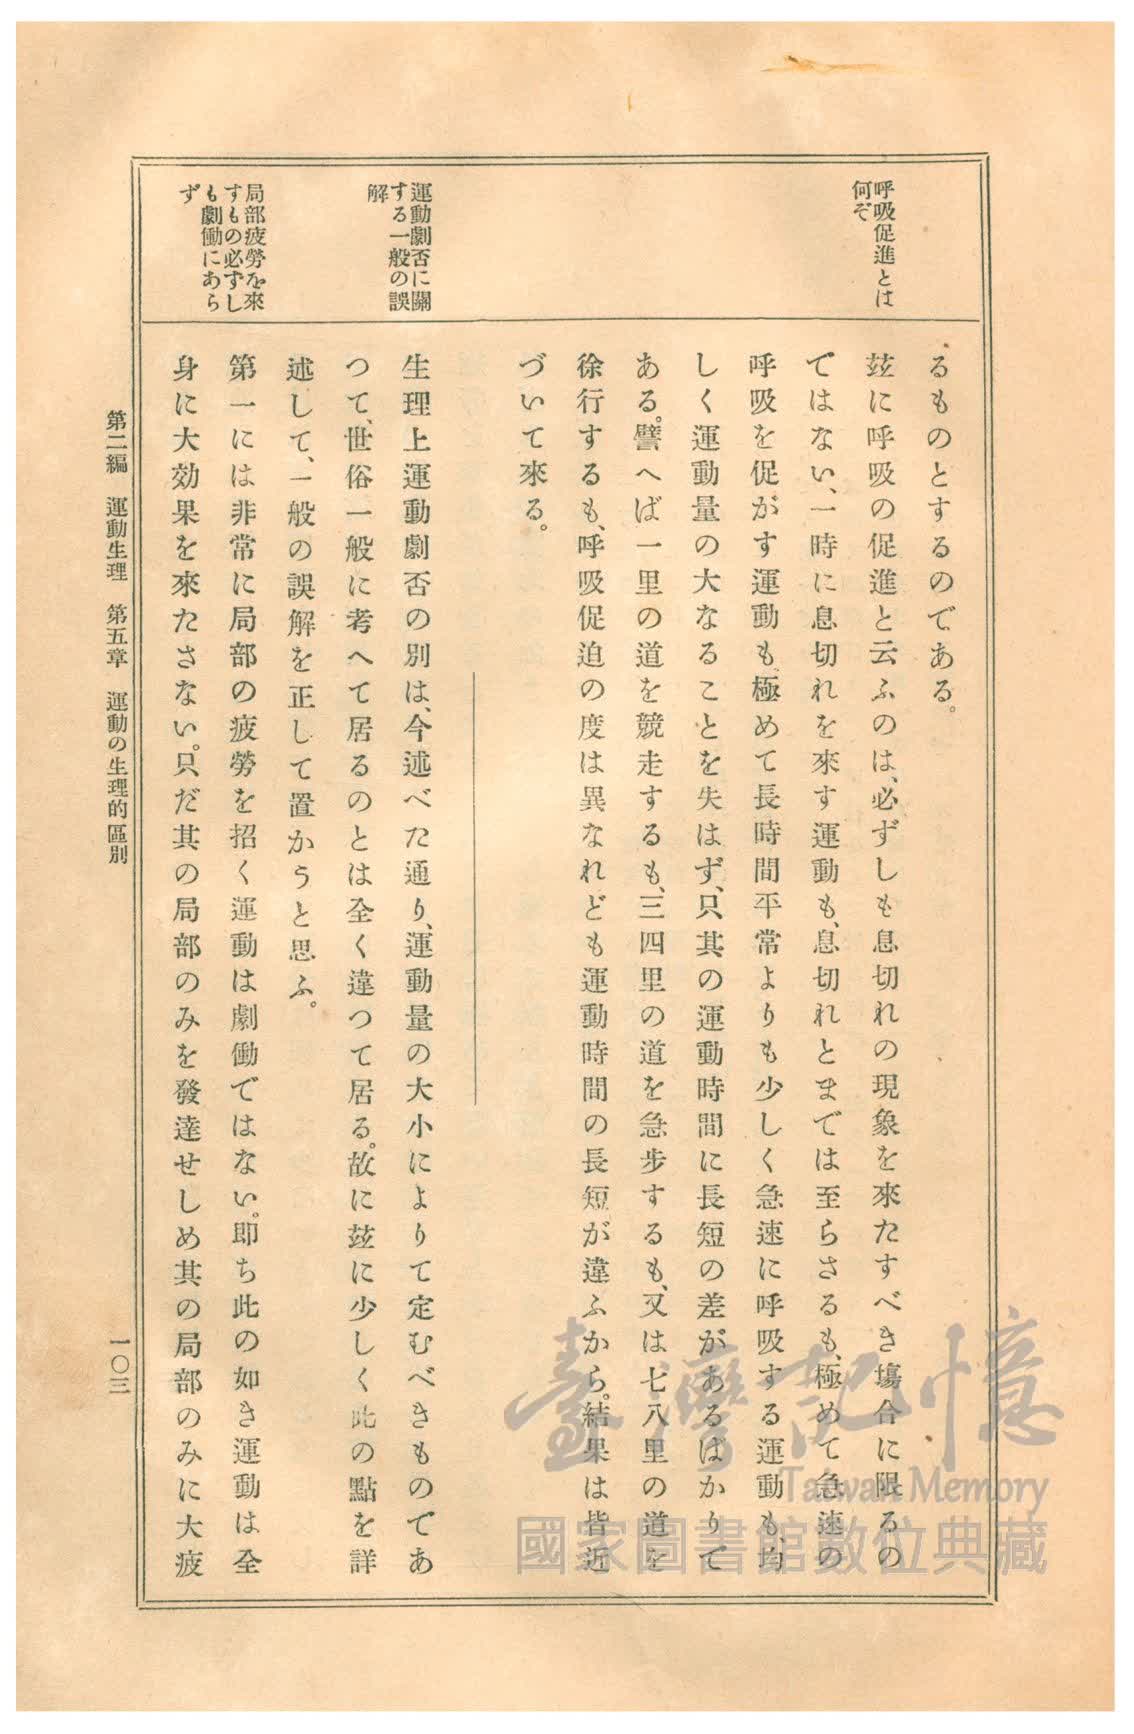 呼吸促進とは
何ぞ
運動劇否に關
する一般の誤
解
局部疲勞を來
すもの必ずし
も劇働にあら
ず
るものとするのである。
玆に呼吸の促進と云ふのは、必ずしも息切れの現象を來たすべき塲合に限るの
ではない、一時に息切れを來す運動も、息切れとまでは至らさるも、極めて急速の
呼吸を促がす運動も、極めて長時間平常よりも少しく急速に呼吸する運動も、均
しく運動量の大なることを失はず、只其の運動時間に長短の差があるばかりて
ある。譬へば一里の道を競走するも、三四里の道を急步するも、又は七八里の道を
徐行するも、呼吸促迫の度は異なれども運動時間の長短が違ふから。結果は皆近
づいて來る。
生理上運動劇否の別は、今述べた通り、運動量の大小によりて定むべきものであ
つて、世俗一般に考へて居るのとは全く違つて居る。故に玆に少しく此の點を詳
述して、一般の誤解を正して置かうと思ふ。
第一には非常に局部の疲勞を招く運動は劇働ではない。即ち此の如き運動は全
身に大効果を來たさない。只だ其の局部のみを發達せしめ其の局部のみに大疲
第二編　運動生理　第五章　運動の生理的區別
一〇三
臺灣記憶
Taiwan Memory
國家圖書館數位典藏